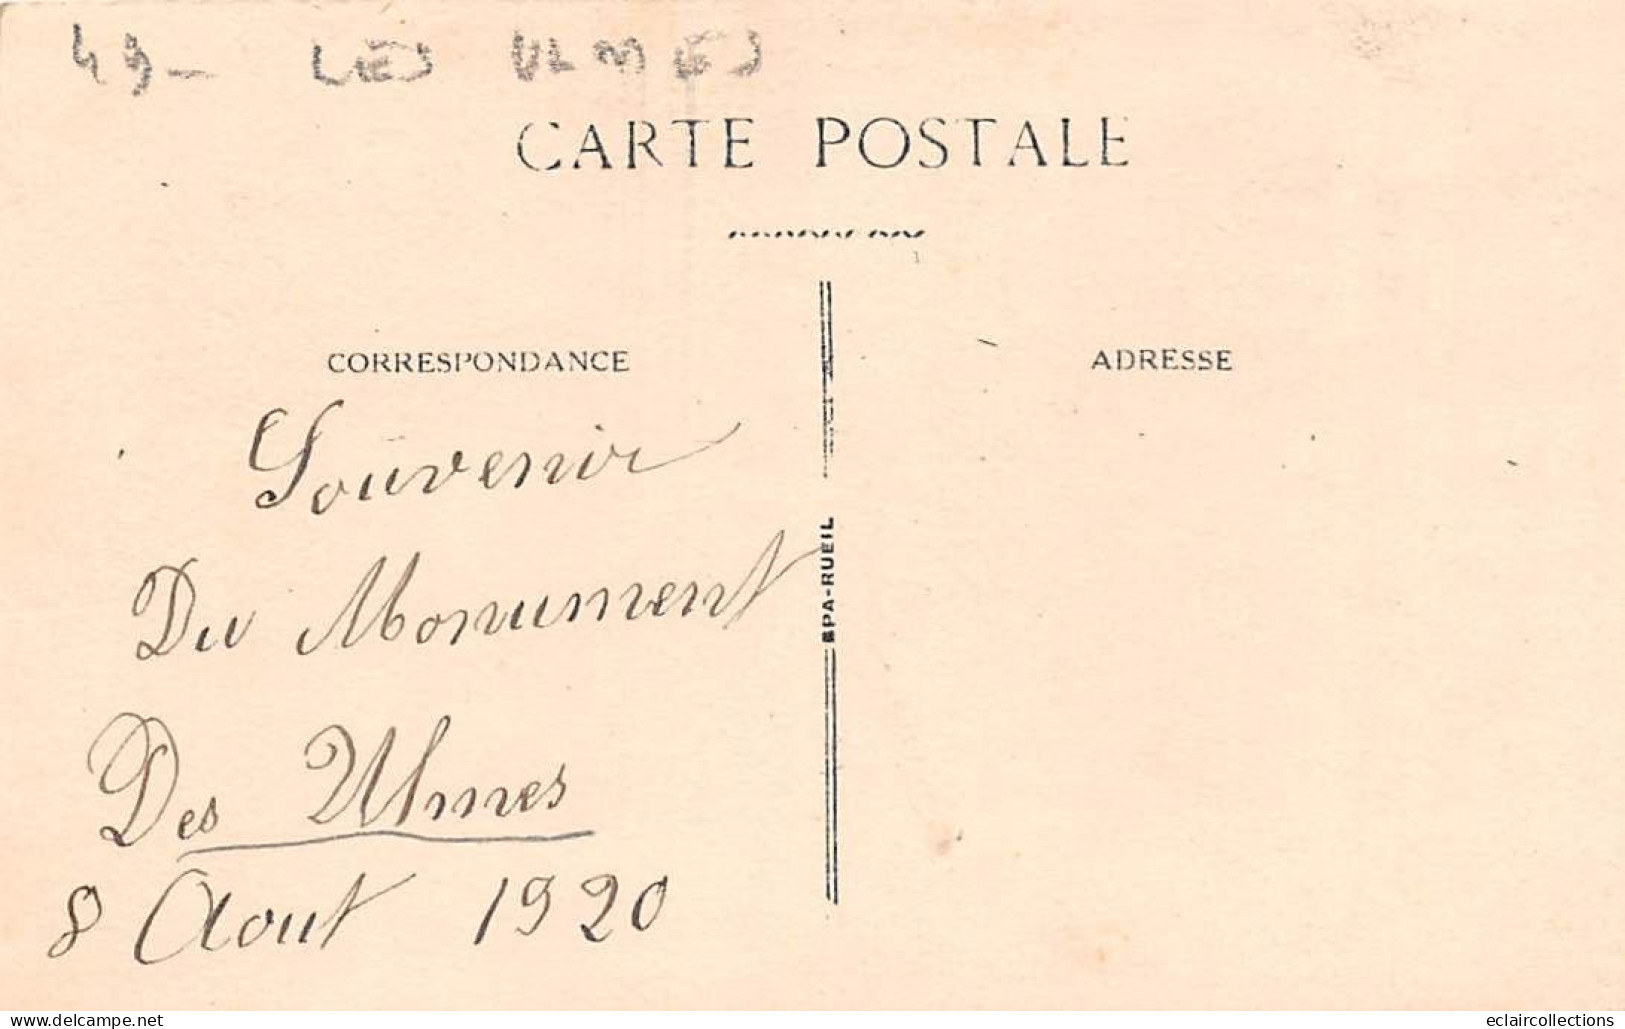 49- LES ULMES
CARTE POSTALE
CORRESPONDANCE
ADRESSE
Souvenir
Du Monument
Des Ulmes
8 Aout 1920
SPA-RUEIL
www.delcampe.net
eclaircollections